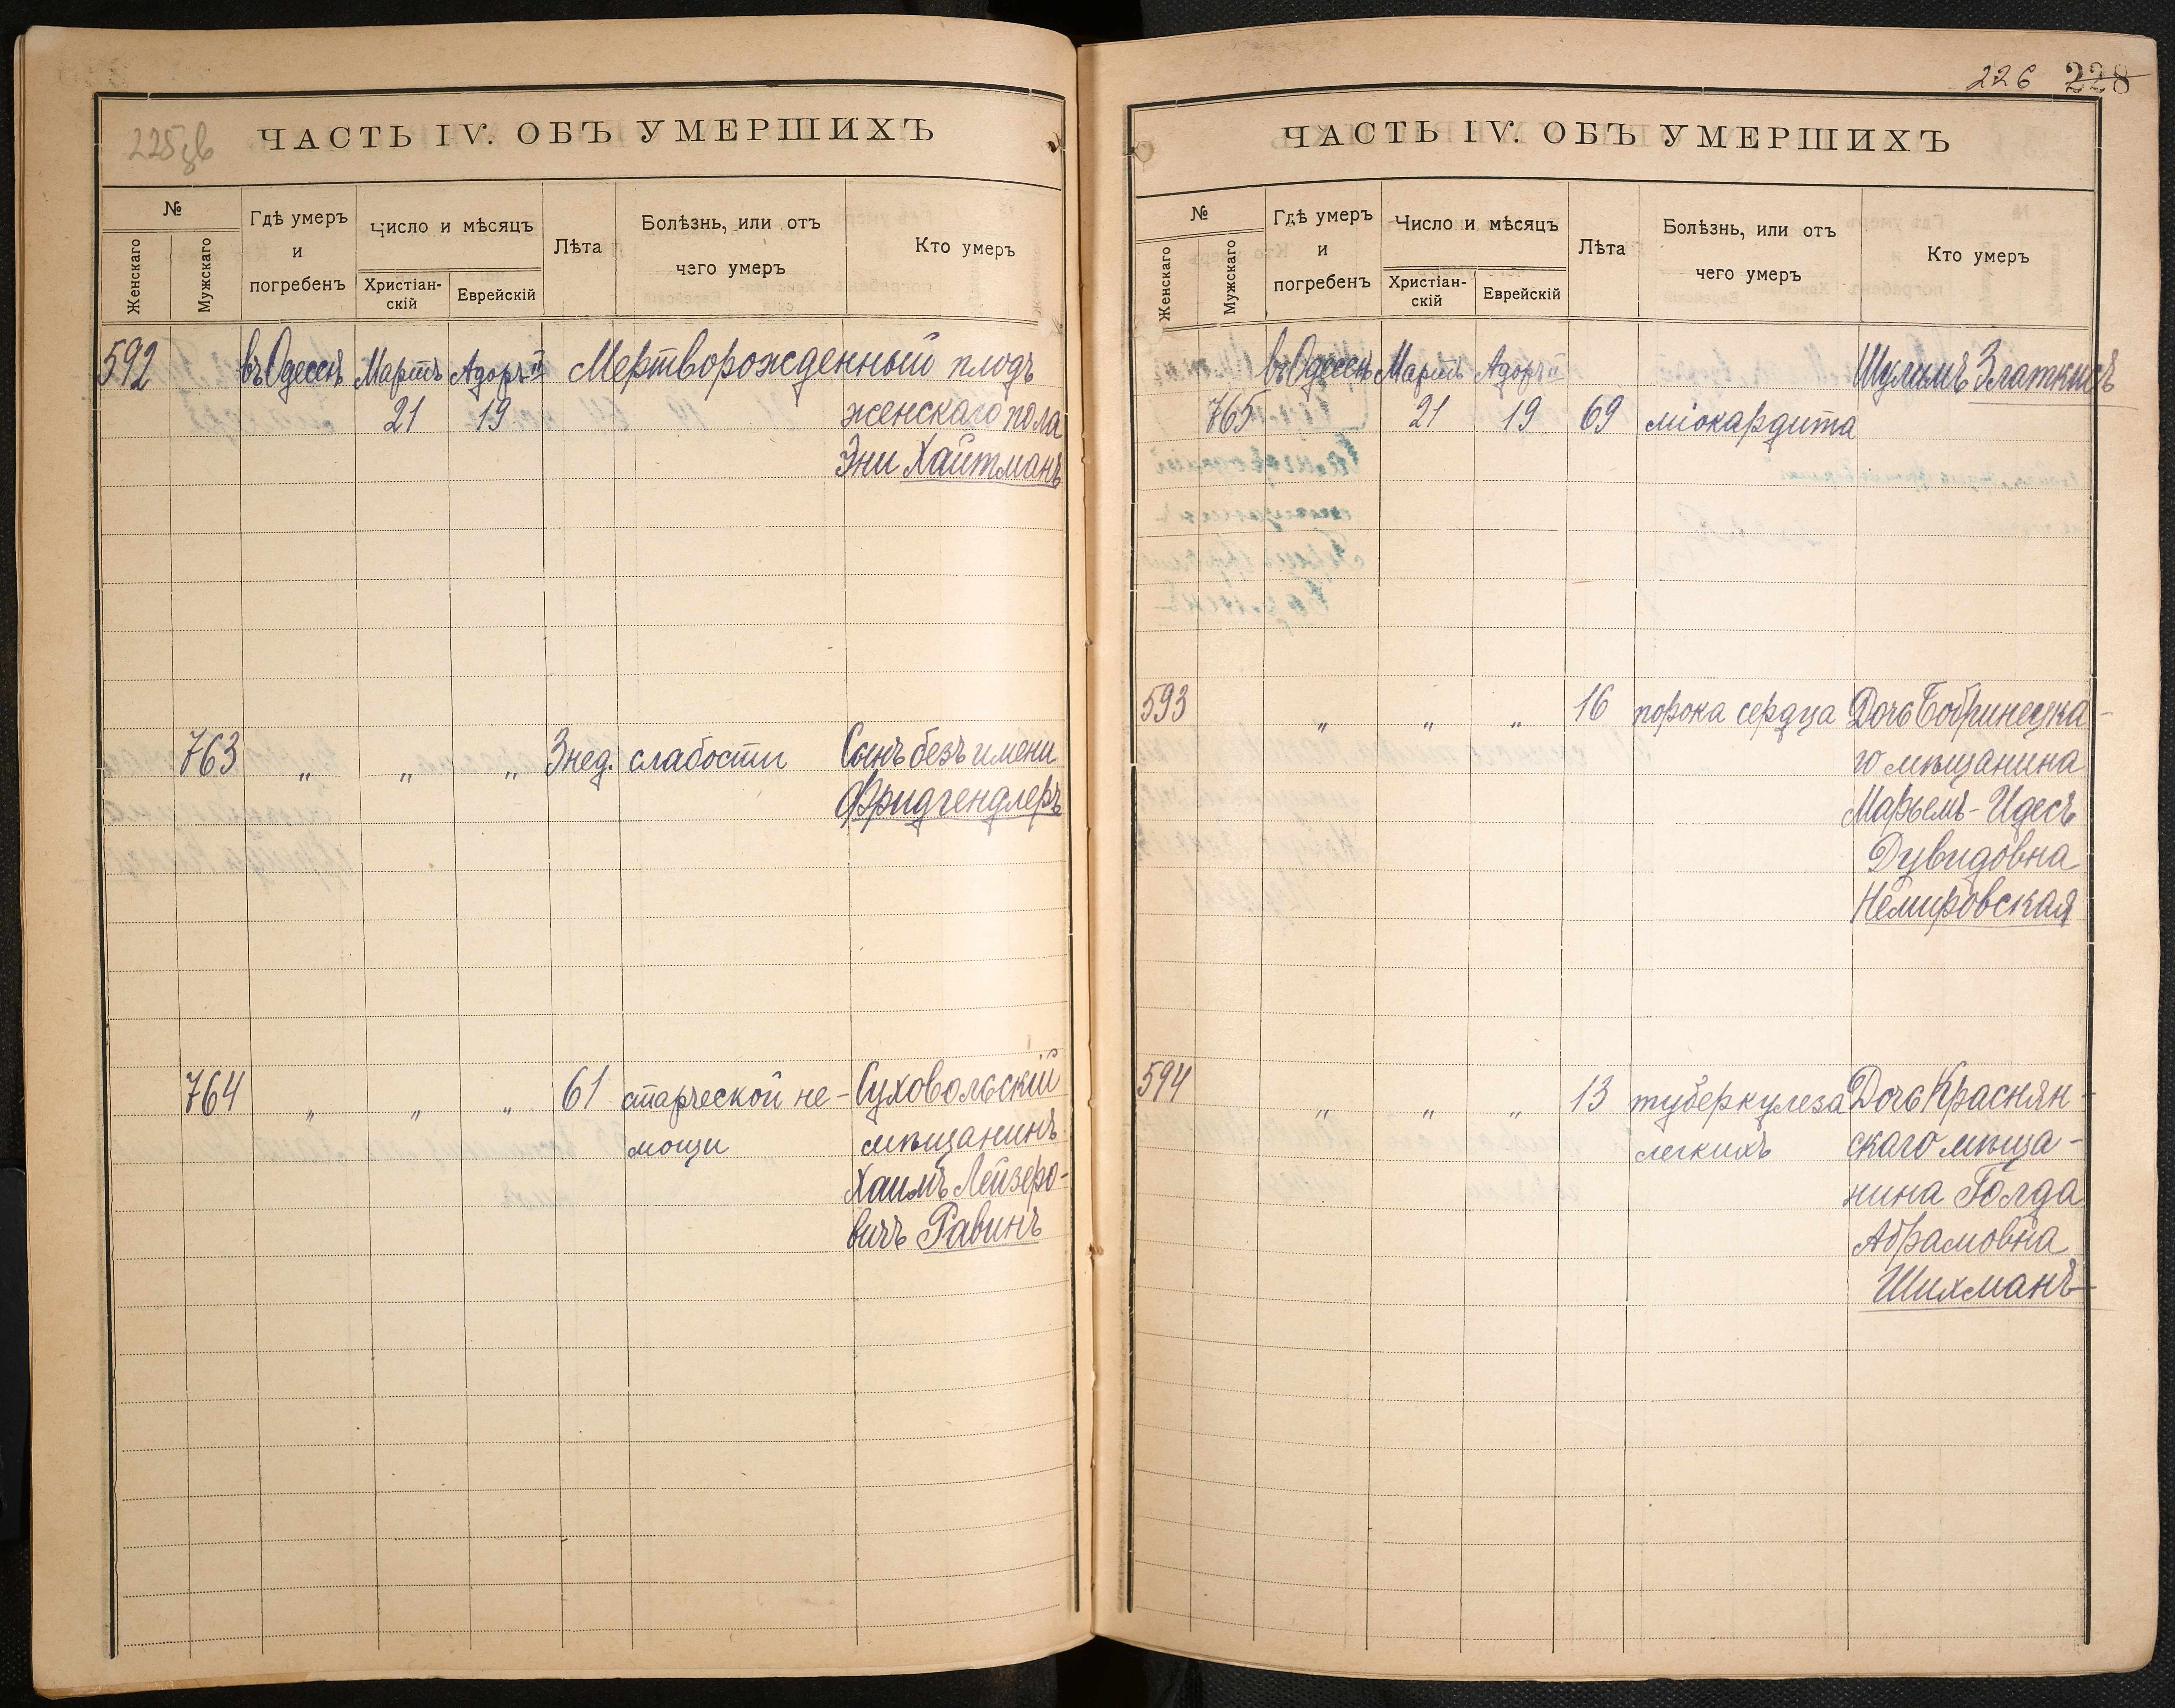 225 зв
ЧАСТЬ IV. ОБЪ УМЕРШИХЪ
№
Женскаго
Мужскаго
Гдѣ умеръ и погребенъ
Число и мѣсяцъ
Христіан-скій
Еврейскій
Лѣта
Болѣзнь, или отъ чего умеръ
Кто умеръ
592 въ Одессѣ Мартъ Адоръ II Мертворожденный плодъ
21 19 женскаго пола
Эни Хайтманъ
763 „ „ „ 3 нед. слабости Сынъ безъ имени
Фридгендлеръ
764 „ „ „ 61 старческой не- Суховольскій
мощи мѣщанинъ
Хаимъ Лейзеро-
вичъ Равинъ
226 228
ЧАСТЬ IV. ОБЪ УМЕРШИХЪ
№
Женскаго
Мужскаго
Гдѣ умеръ и погребенъ
Число и мѣсяцъ
Христіан-скій
Еврейскій
Лѣта
Болѣзнь, или отъ чего умеръ
Кто умеръ
въ Одессѣ Мартъ Адоръ II Шулимъ Златкисъ
765 21 19 69 міокардита
593 „ „ „ 16 порока сердца Дочь Бобринецка-
го мѣщанина
Марьемъ-Идесъ
Дувидовна
Немировская
594 „ „ „ 13 туберкулеза Дочь Краснян-
легкихъ скаго мѣща-
нина Голда
Абрамовна
Шихманъ